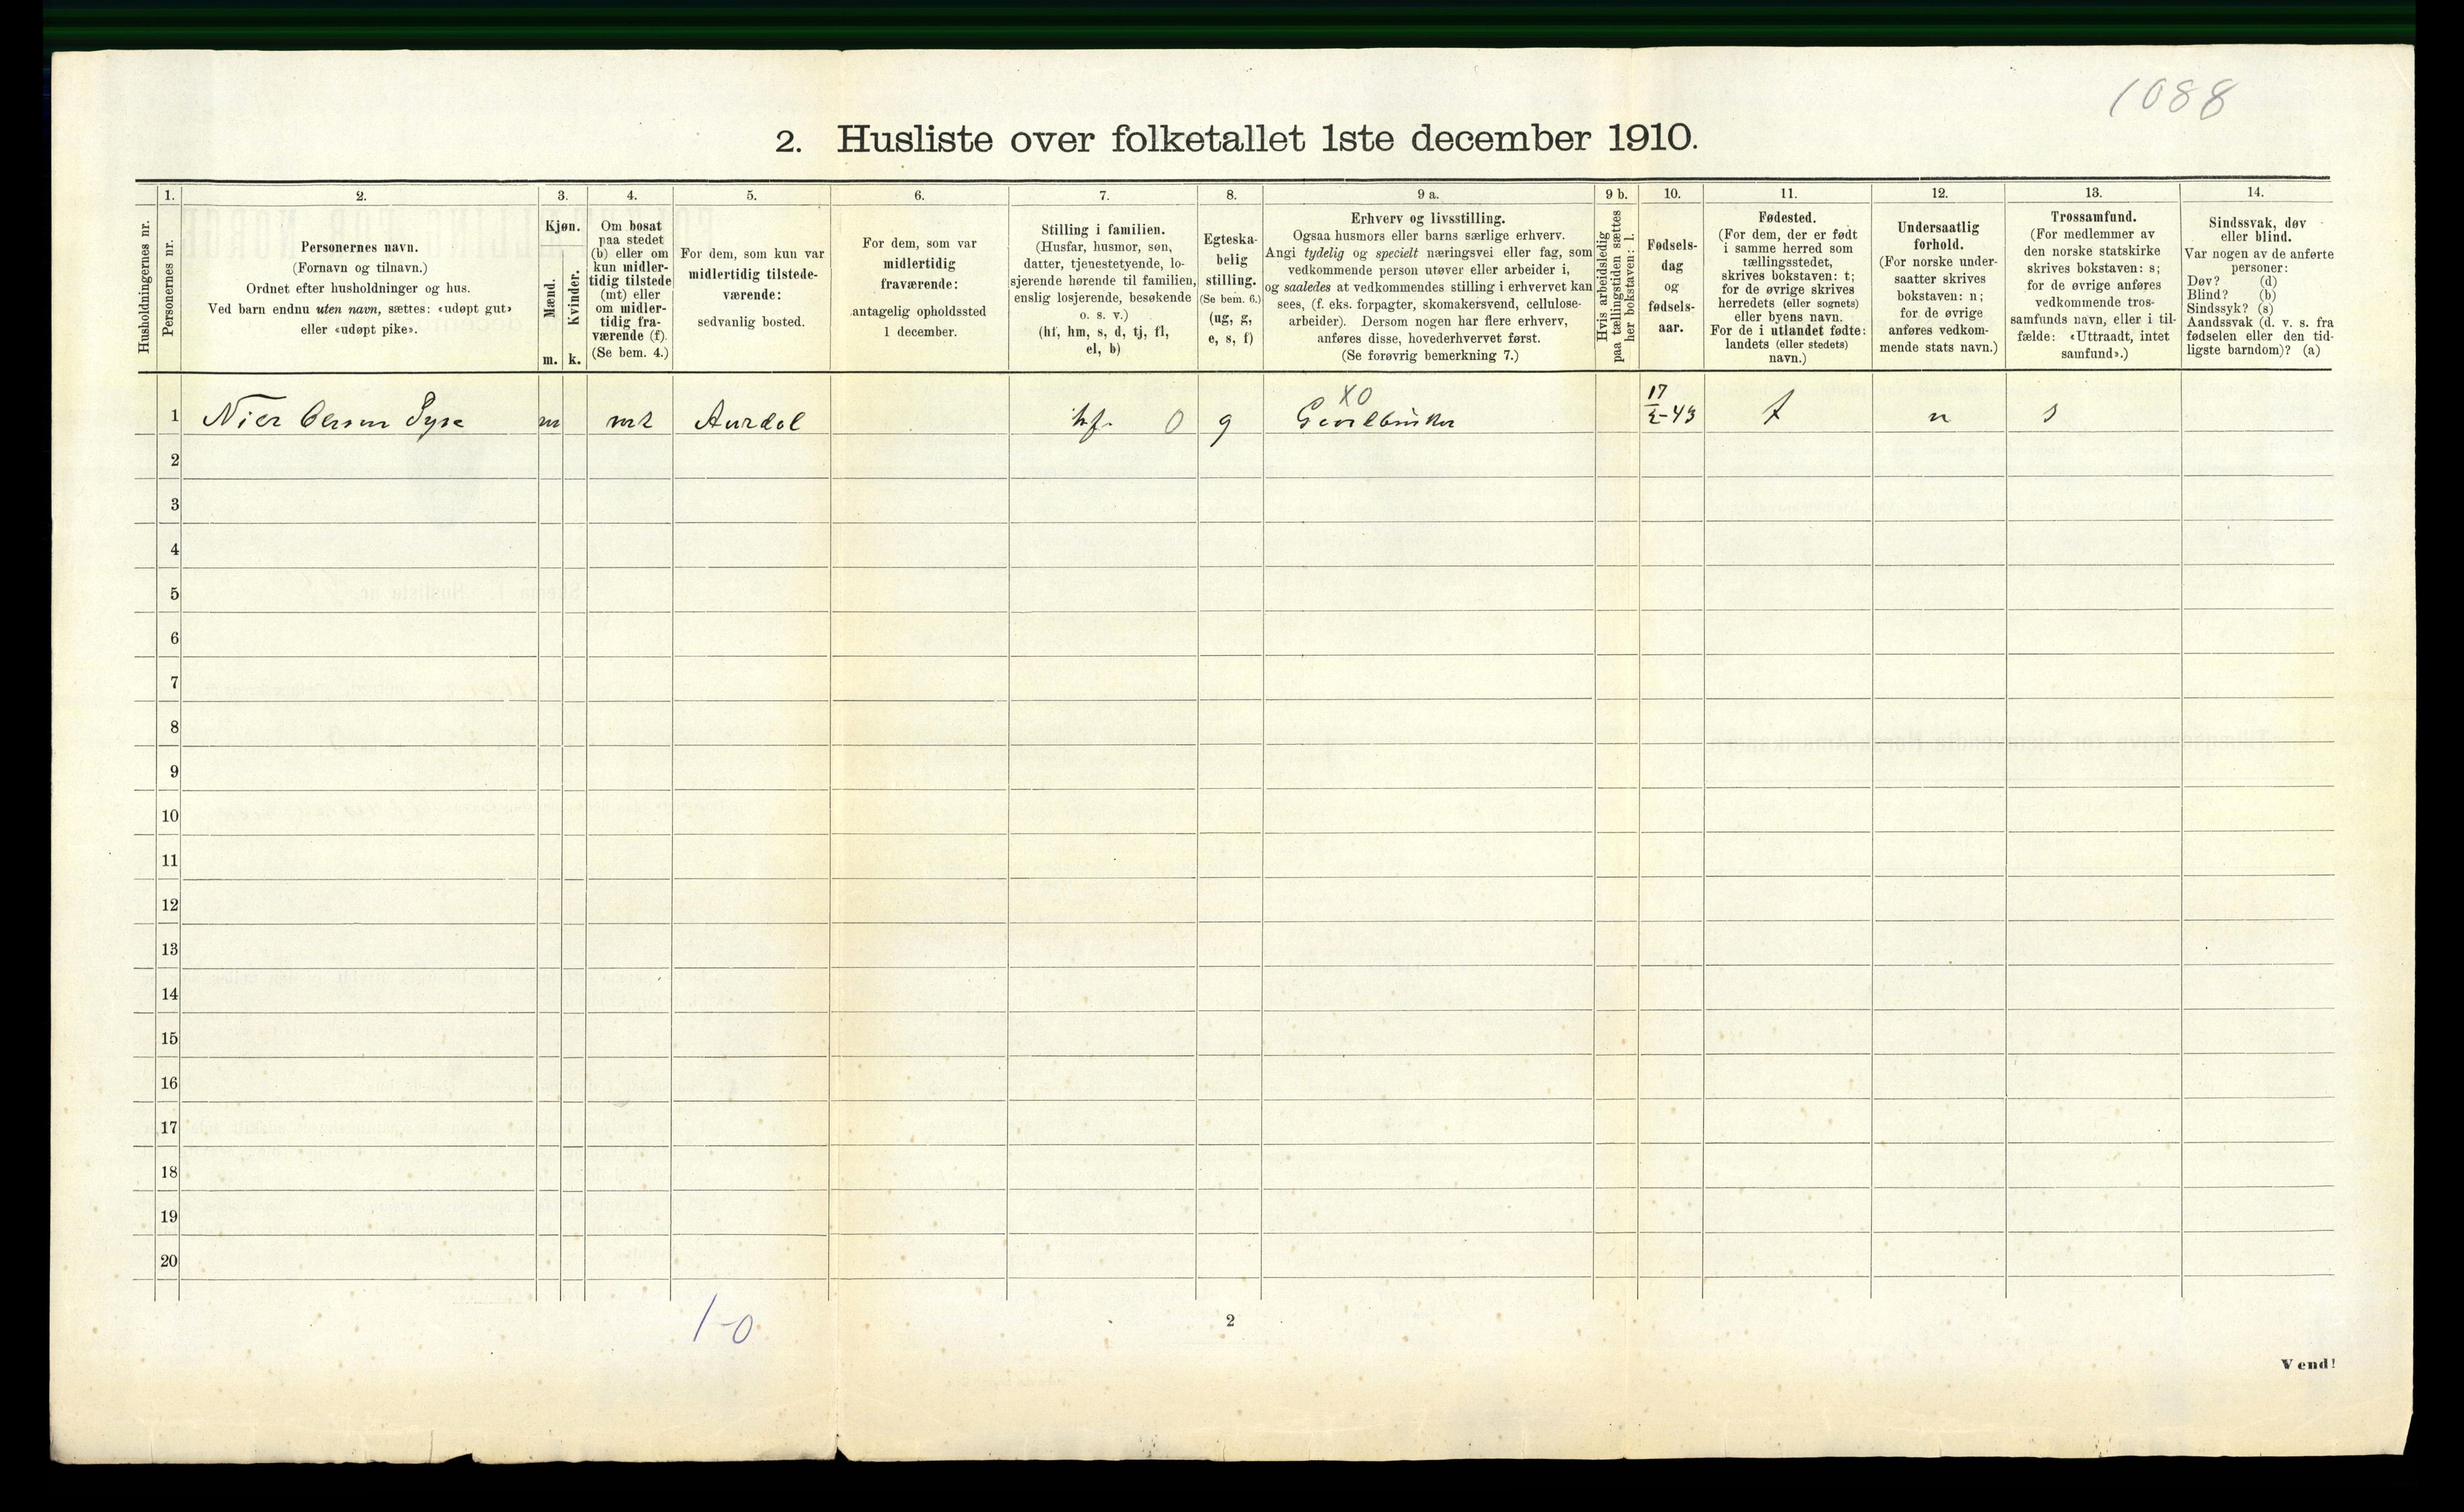 1088
2. Husliste over folketallet 1ste december 1910.
Husholdningernes nr.
1.
Personernes nr.
2.
Personernes navn.
(Fornavn og tilnavn.)
Ordnet efter husholdninger og hus.
Ved barn endnu uten navn, sættes: «udøpt gut»
eller «udøpt pike».
3.
Kjøn.
Mænd.
m.
Kvinder.
k.
4.
Om bosat
paa stedet
(b) eller om
kun midler-
tidig tilstede
(mt) eller
om midler-
tidig fra-
værende (f).
(Se bem. 4.)
5.
For dem, som kun var
midlertidig tilstede-
værende:
sedvanlig bosted.
6.
For dem, som var
midlertidig
fraværende:
antagelig opholdssted
1 december.
7.
Stilling i familien.
(Husfar, husmor, søn,
datter, tjenestetyende, lo-
sjerende hørende til familien,
enslig losjerende, besøkende
o. s. v.)
(hf, hm, s, d, tj, fl,
el, b)
8.
Egteska-
belig
stilling.
(Se bem. 6.)
(ug, g,
e, s, f)
9 a.
Erhverv og livsstilling.
Ogsaa husmors eller barns særlige erhverv.
Angi tydelig og specielt næringsvei eller fag, som
vedkommende person utøver eller arbeider i,
og saaledes at vedkommendes stilling i erhvervet kan
sees, (f. eks. forpagter, skomakersvend, cellulose-
arbeider). Dersom nogen har flere erhverv,
anføres disse, hovederhvervet først.
(Se forøvrig bemerkning 7.)
9 b.
Hvis arbeidsledig
paa tællingstiden sættes
her bokstaven: l.
10.
Fødsels-
dag
og
fødsels-
aar.
11.
Fødested.
(For dem, der er født
i samme herred som
tællingsstedet,
skrives bokstaven: t;
for de øvrige skrives
herredets (eller sognets)
eller byens navn.
For de i utlandet fødte:
landets (eller stedets)
navn.)
12.
Undersaatlig
forhold.
(For norske under-
saatter skrives
bokstaven: n;
for de øvrige
anføres vedkom-
mende stats navn.)
13.
Trossamfund.
(For medlemmer av
den norske statskirke
skrives bokstaven: s;
for de øvrige anføres
vedkommende tros-
samfunds navn, eller i til-
fælde: «Uttraadt, intet
samfund».)
14.
Sindssvak, døv
eller blind.
Var nogen av de anførte
personer:
Døv? (d)
Blind? (b)
Sindssyk? (s)
Aandssvak (d. v. s. fra
fødselen eller den tid-
ligste barndom)? (a)
XO
1 Olsen m mt Aurdal hf. 0 g 17/2-43 t n s
2
3
4
5
6
7
8
9
10
11
12
13
14
15
16
17
18
19
20
1-0
2
Vend!